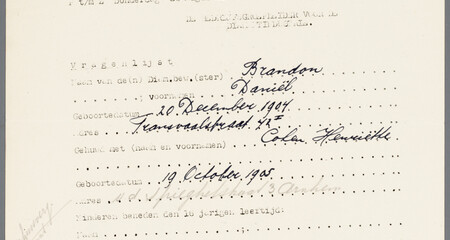 Vragenlijst
Naam van de(n) Diem.bew.(ster) Brandon
voornamen Daniël
Geboortedatum 20 December 1904
Adres Transvaalstraat 42 II
Gehuwd met (naam en voornamen) Cohen Henriëtte
Geboortedatum 19 October 1905
Adres 3 Arnhem
Kinderen beneden den 16 jarigen leeftijd:
Naam